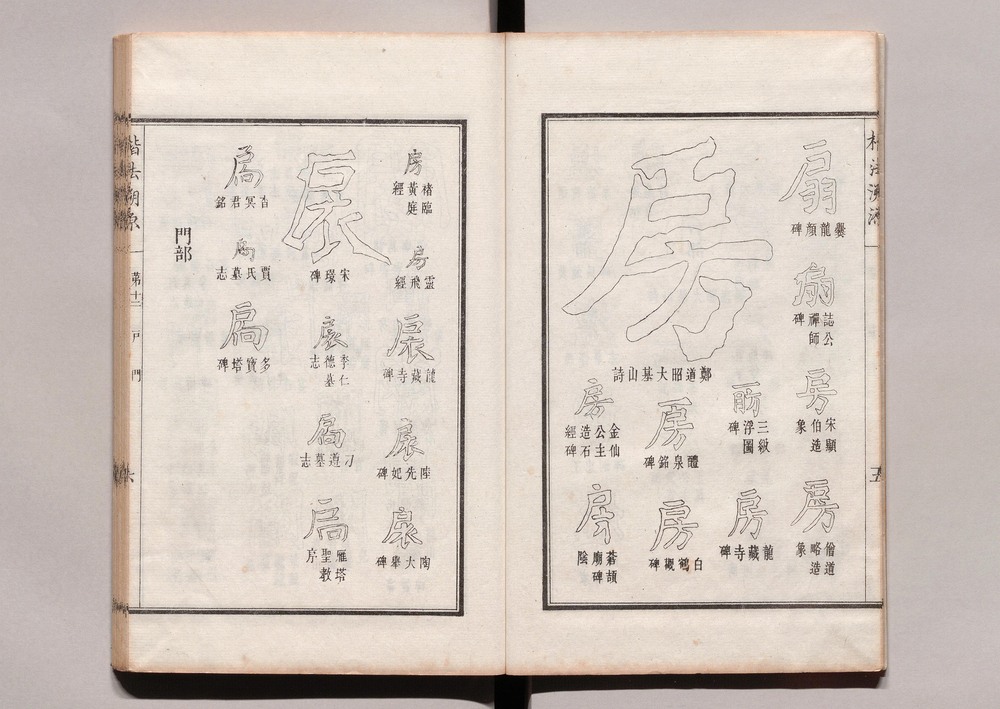 楷法溯源
五
扇
爨龍顏碑
扇
誌公禪師碑
房
宋顯伯造象
房
僧道略造象
房
鄭道昭大基山詩
房
三級浮圖碑
房
龍藏寺碑
房
醴泉銘碑
房
白鶴觀碑
房
金仙公主造石經碑
房
蒼頡廟碑陰
房
褚臨黃庭經
房
靈飛經
扆
龍藏寺碑
扆
陸先妃碑
扆
陶大舉碑
扆
宋璟碑
扆
李仁德墓志
扃
刁道墓志
扃
雁塔聖教序
扃
吉冥君銘
扃
賈氏墓志
扃
多寶塔碑
門部
楷法溯源
第十二
戶
門